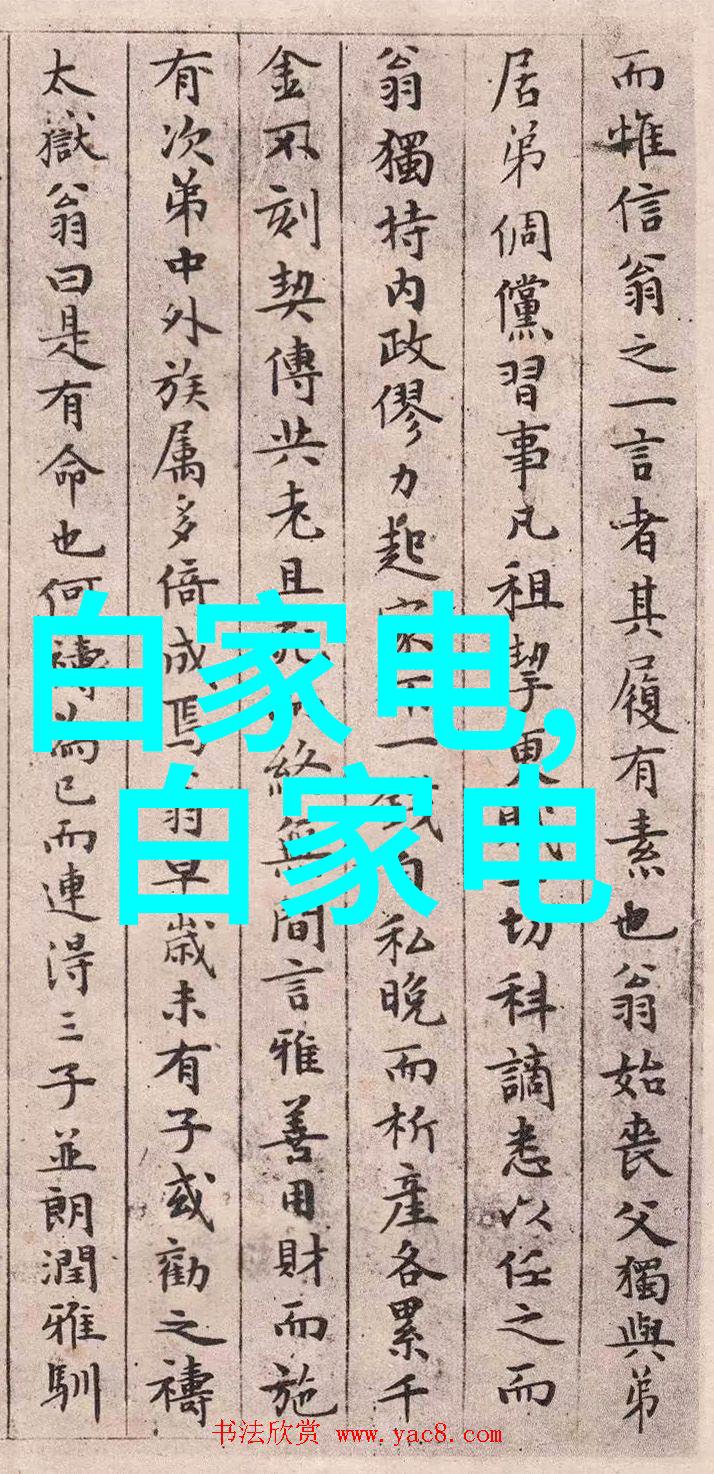 而惟信翁之一言者其履有素也翁始喪父獨與弟
居弟倜儻習事凡租挈更賦一切科謫悉以任之而
翁獨持内政僇力起家不一錢自私晚而析產各累千
金不刻契傳共老且死終無間言雅善用財而施
有次第中外族属多倚成焉翁早歲未有子或勸之禱
太嶽翁曰是有命也何禱為已而連得三子並朗潤雅馴
白家电,
白家电
书法欣赏 www.yac8.com